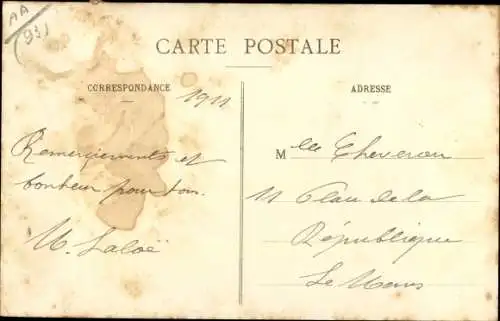 AA
(93)
CARTE POSTALE
CORRESPONDANCE
1911
ADRESSE
Remerciements et
bonheur pour ton.
M. Laloë
Mlle Cheveron
11 Place de la
République
Le Mans